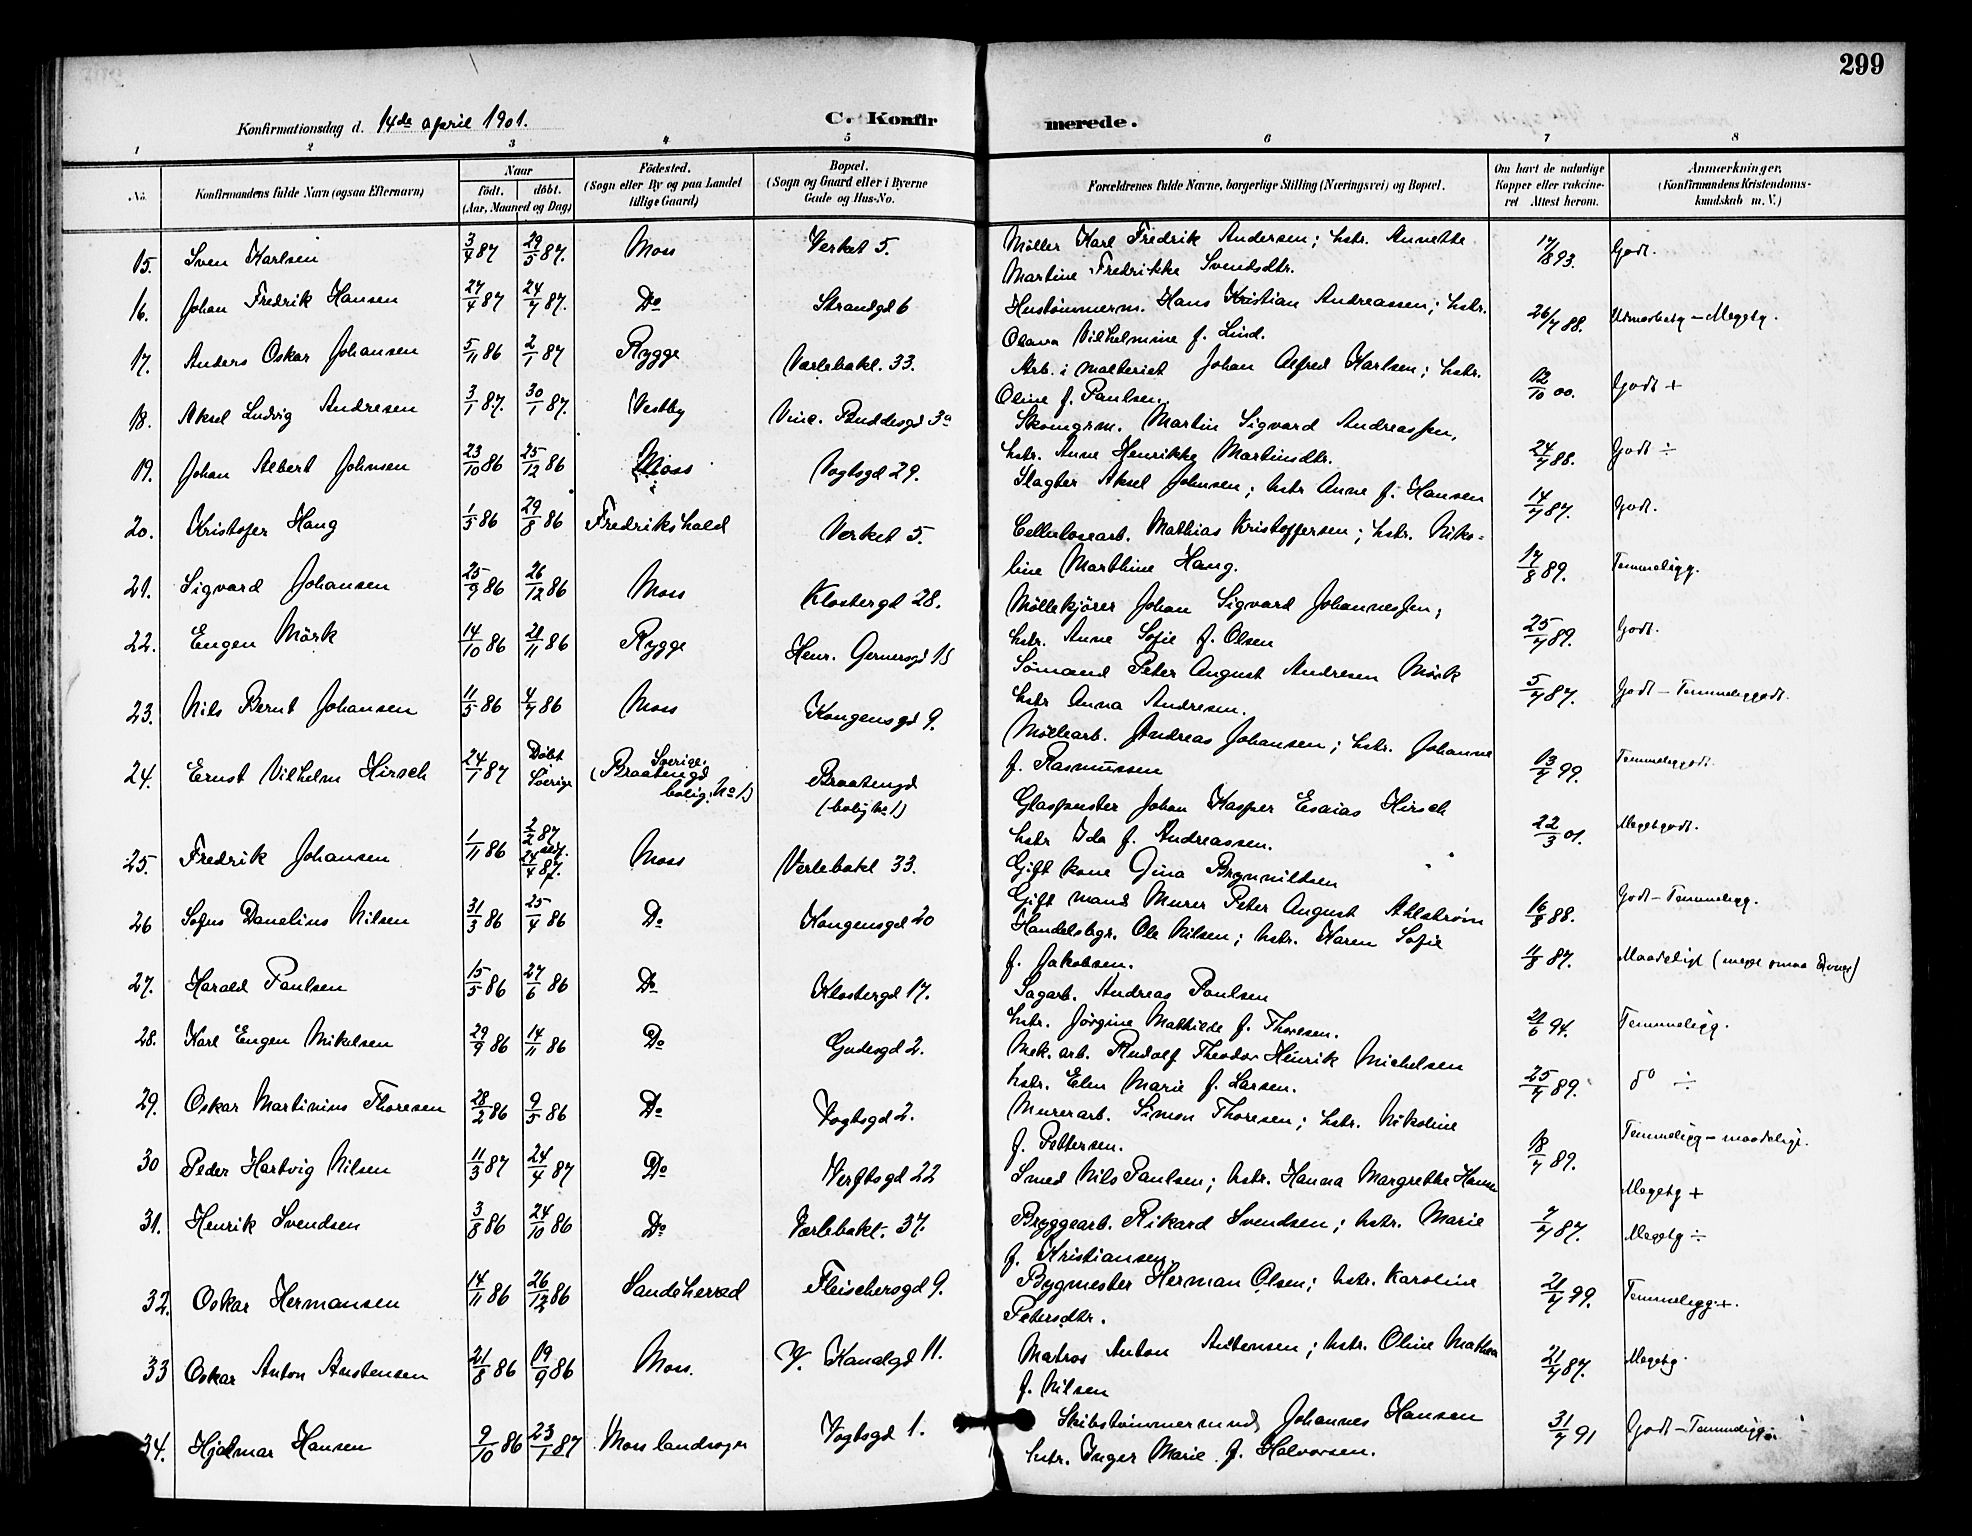 299
Konfirmationsdag d. 14de april 1901.
C. Konfir merede.
1 2 3 4 5 6 7 8
No. Konfirmandens fulde Navn (ogsaa Efternavn) Naar født. døbt. (Aar, Maaned og Dag) Födested. (Sogn eller By og paa Landet tillige Gaard) Bopæl. (Sogn og Gaard eller i Byerne Gade og Hus-No. Forældrenes fulde Navne, borgerlige Stilling (Næringsvei) og Bopæl. Om havt de naturlige Kopper eller vakcineret Attest herom. Anmærkninger, (Konfirmandens Kristendomskundskab m. V.)
15. Sven Karlsen 3/4 87 29/5 87. Moss Verket 5. Møller Karl Fredrik Andersen; hstr. Annette 17/8 93. Godt.
Martine Fredrikke Svendsdtr.
16. Johan Fredrik Hansen 27/4 87 24/7 87. Do Strandgd 6 Hustømmerm. Hans Kristian Andreassen; hstr. 26/7 88. Udmærketg – Megetg.
Olava Vilhelmine f. Lind.
17. Anders Oskar Johansen 5/11 86 2/1 87 Rygge Værlebakl. 33. Arb. i Malteriet Johan Alfred Karlsen; hstr. 12/10 00. Godt +
Oline f. Paulsen.
18. Aksel Ludvig Andresen 3/1 87. 30/1 87. Vestby Vinc. Buddesgd 3a Skomgrm. Martin Sigvard Andreassen, 24/7 88. Godt ÷
hstr. Anne Henrikke Martinsdtr.
19. Johan Albert Johnsen 23/10 86 25/12 86 Moss Vogtsgd 29. Slagter Aksel Johnsen; hstr Anne f. Hansen 14/7 87. Godt.
20. Kristofer Haug 1/5 86 29/8 86 Fredrikshald Verket 5. Cellulosearb. Mathias Kristoffersen; hstr. Niko-
line Marthine Haug. 17/8 89. Temmeligg.
21. Sigvard Johansen 25/9 86 26/12 86 Moss Klostergd 28. Møllekjører Johan Sigvard Johannessen;
hstr. Anne Sofie f. Olsen 25/7 89. Godt.
22. Eugen Mörk 14/10 86 21/11 86 Rygge Henr. Gernersgd 15 Sømand Peter August Andresen Mörk
hstr Anna Andresen. 5/7 87. Godt – Temmeliggodt.
23. Nils Bernt Johansen 11/5 86 4/7 86 Moss Kongensgd 9. Møllearb. Andreas Johansen; hstr. Johanne
f. Rasmussen 13/7 99. Temmeliggodt.
24. Ernst Vilhelm Hirsch 24/1 87 Döbt i Sverige Sverige. (Braatengd bolig No 1) Braatengd (bolig No 1) Glaspuster Johan Kasper Esaias Hirsch
hstr Ida f. Andreassen. 22/3 01. Megetgodt.
25. Fredrik Johansen 1/11 86 2/2 87 24/4 87. Moss Verlebakl 33. Gift kone Gina Brynniltsen
Gift mand Murer Peter August Ahlstrøm 16/8 88. Godt – Temmeligg.
26 Sofus Danelius Nilsen 31/3 86 25/4 86 Do Kongensgd 20 Handelsbgr. Ole Nilsen; hstr. Karen Sofie
f. Jakobsen. 11/8 87. Maadeligt
27. Harald Paulsen 15/5 86 27/6 86 Do Klostergd 17. Sagarb. Andreas Paulsen
hstr. Jørgine Mathilde f. Thoresen. 21/6 94. Temmeligg.
28. Karl Eugen Mikelsen 29/9 86 14/11 86 Do Gudesgd 2. Mek. arb. Rudolf Theodor Henrik Michelsen
hstr. Elen Marie f. Larsen. 25/7 89. do ÷
29. Oskar Martinius Thoresen 28/2 86 9/5 86 Do Vogtsgd 2. Murerarb. Simon Thoresen; hstr. Nikoline
f. Pettersen. 18/7 89. Temmeligg – maadeligt.
30 Peder Hartvig Nilsen 11/3 87 24/4 87 Do Verftsgd 22 Smed Nils Paulsen; hstr. Hanna Margrethe Hansen Megetg +
31. Henrik Svendsen 3/8 86 24/10 86 Do Værlebakl. 37. Bryggearb. Rikard Svendsen; hstr. Marie 7/7 87. Megetg ÷
f. Kristiansen.
32. Oskar Hermansen 14/11 86 26/12 86 Sandeherred Fleischersgd 9. Bygmester Herman Olsen; hstr. Karoline 21/7 99. Temmeligg +.
Petersdtr.
33 Oskar Anton Austensen 21/8 86 19/9 86 Moss. V. Kanalgd 11. Matros Anton Austensen; hstr. Oline Mathea 21/7 87. Megetg.
f. Nilsen
34. Hjalmar Hansen 9/10 86 23/1 87 Moss landsogn Vogtsgd 1. Skibstömmermnd Johannes Hansen 31/7 91 Godt – Temmeligg
hstr. Inger Marie f. Halvorsen.